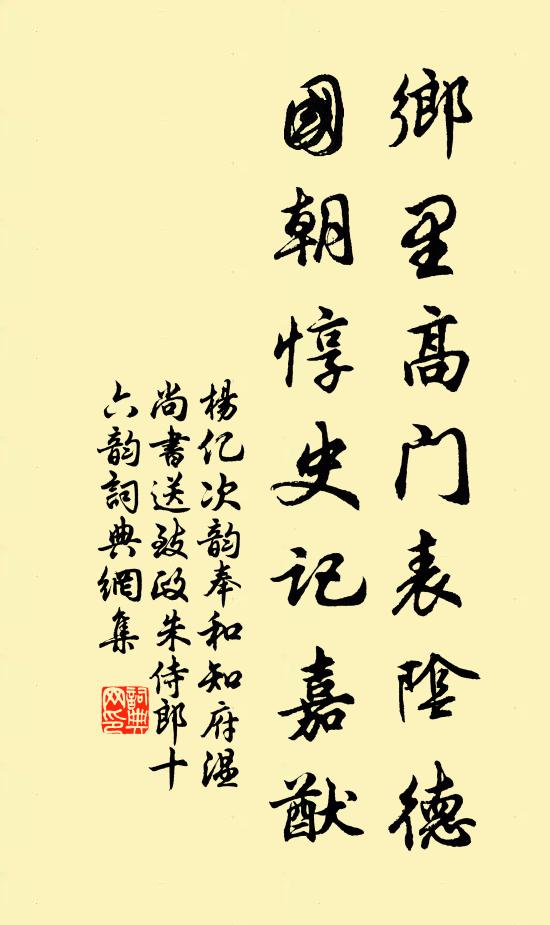 鄉里高門表陰德
國朝惇史記嘉猷
楊亿次韵奉和知府温
尚書送致政朱侍郎十
六韵詞典網集
詞典网印